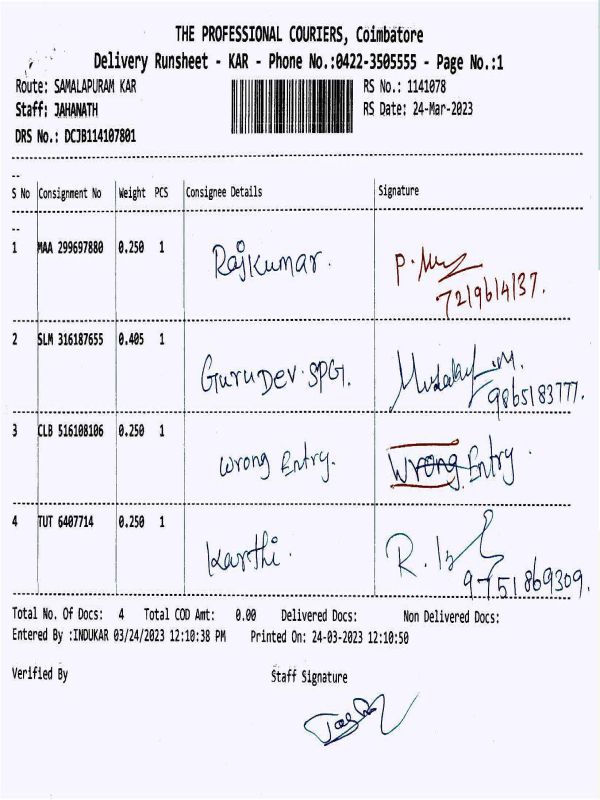 THE PROFESSIONAL COURIERS, Coimbatore
Delivery Runsheet - KAR - Phone No.:0422-3505555 - Page No.:1
Route: SAMALAPURAM KAR RS No.: 1141078
Staff: JAHANATH RS Date: 24-Mar-2023
DRS No.: DCJB114107801
S No Consignment No Weight PCS Consignee Details Signature
1 MAA 299697880 0.250 1 Rajkumar. P.
7219614137.
2 SLM 316187655 0.405 1 GuruDev.SPG. M.
9865183777.
3 CLB 516108106 0.250 1 Wrong Entry. Wrong Entry.
4 TUT 6407714 0.250 1 Karthi. R.
9751869309.
Total No. Of Docs: 4 Total COD Amt: 0.00 Delivered Docs: Non Delivered Docs:
Entered By :INDUKAR 03/24/2023 12:10:38 PM Printed On: 24-03-2023 12:10:50
Verified By Staff Signature